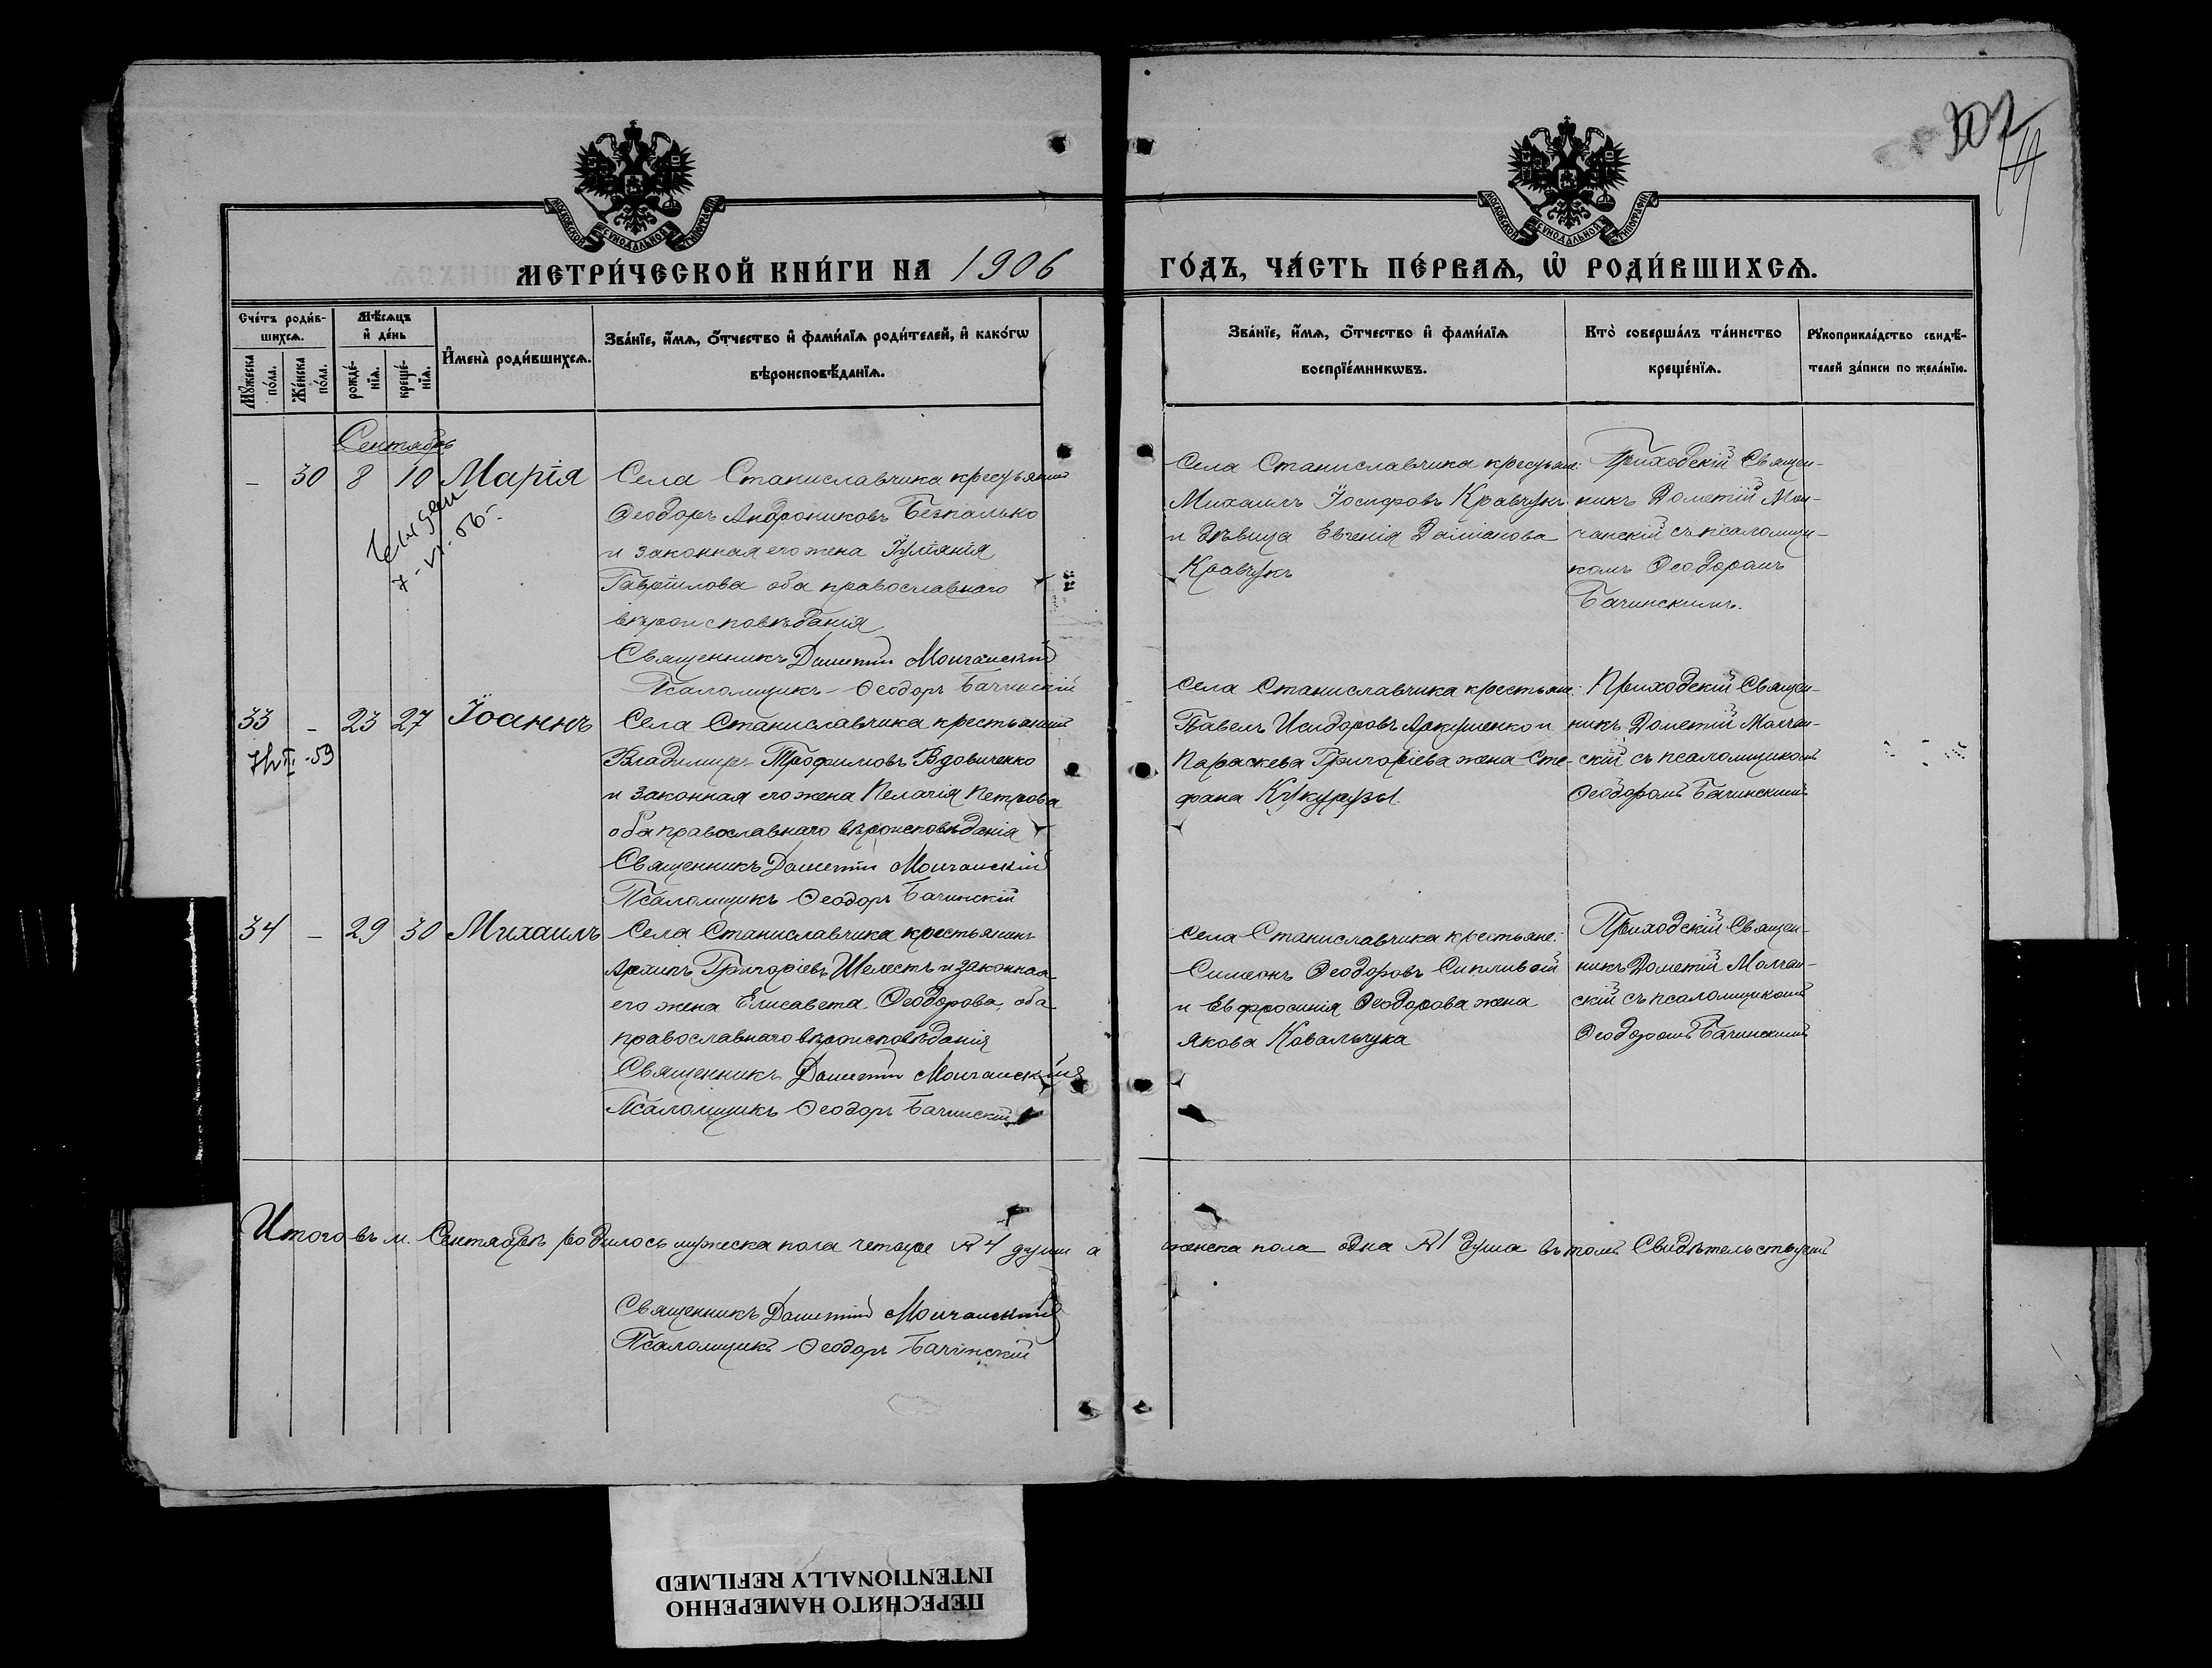 307
МОСКОВСКОЙ СѴНОДАЛЬНОЙ ТИПОГРАФІИ
МОСКОВСКОЙ СѴНОДАЛЬНОЙ ТИПОГРАФІИ
МЕТРИ́ЧЕСКОЙ КНИ́ГИ НА 1906
ГО́ДЪ, ЧА́СТЬ ПЕ́РВАѦ, Ѡ҆ РОДИ́ВШИХСѦ.
Сче́тъ роди́в-
шихсѧ.
Мꙋ́жеска
по́ла.
Же́нска
по́ла.
Мѣ́сѧцъ
и҆ де́нь
рожде́-
нїѧ.
креще́-
нїѧ.
И҆мена̀ роди́вшихсѧ.
Зва́нїе, и҆́мѧ, ѻ҆́тчество и҆ фами́лїѧ роди́телей, и҆ како́гѡ
вѣроисповѣ́данїѧ.
Зва́нїе, и҆́мѧ, ѻ҆́тчество и҆ фами́лїѧ
воспрїе́мникѡвъ.
Кто̀ соверша́лъ та́инство
креще́нїѧ.
Рꙋкоприкла́дство свидѣ́-
телей за́писи по жела́нїю.
Сентябрь
– 30 8 10 Марія
7-VI-56
Села Станиславчика крестьянин
Ѳеодоръ Андрониковъ Безпалько
и законная его жена Іуліанія
Гавріилова оба православнаго
вѣроисповѣданія
Священникъ Дометій Молчанскій
Псаломщикъ Ѳеодоръ Бачинскій
Села Станиславчика крестьяне:
Михаилъ Іосифовъ Кравчукъ
и дѣвица Евгенія Даміанова
Кравчукъ
Приходскій Священ-
никъ Дометій Мол-
чанскій съ псаломщи-
комъ Ѳеодоромъ
Бачинскимъ.
33 – 23 27 Іоаннъ
Села Станиславчика крестьянинъ
Владимиръ Трофимовъ Вдовиченко
и законная его жена Пелагія Петрова
оба православнаго вѣроисповѣданія
Священникъ Дометій Молчанскій
Псаломщикъ Ѳеодоръ Бачинскій
Села Станиславчика крестьяне:
Павелъ Исидоровъ Аркушенко и
Параскева Григоріева жена Сте-
фана Кукурузы.
Приходскій Священ-
никъ Дометій Молчан-
скій съ псаломщикомъ
Ѳеодоромъ Бачинскимъ
34 – 29 30 Михаилъ
Села Станиславчика крестьянинъ
Архипъ Григоріевъ Шелестъ и законная
его жена Елисавета Ѳеодорова, оба
православнаго вѣроисповѣданія
Священникъ Дометій Молчанскій
Псаломщикъ Ѳеодоръ Бачинскій
Села Станиславчика крестьяне:
Симеонъ Ѳеодоровъ Сипливый
и Евфросинія Ѳеодорова жена
Якова Ковальчука
Приходскій Священ-
никъ Дометій Молчан-
скій съ псаломщикомъ
Ѳеодоромъ Бачинскимъ
Итого въ м. Сентябрѣ родилось мужеска пола четыре 4 души а
женска пола одна 1 душа въ томъ Свидѣтельствуемъ
Священникъ Дометій Молчанскій
Псаломщикъ Ѳеодоръ Бачинскій
ПЕРЕСНЯТО НАМЕРЕННО
INTENTIONALLY REFILMED